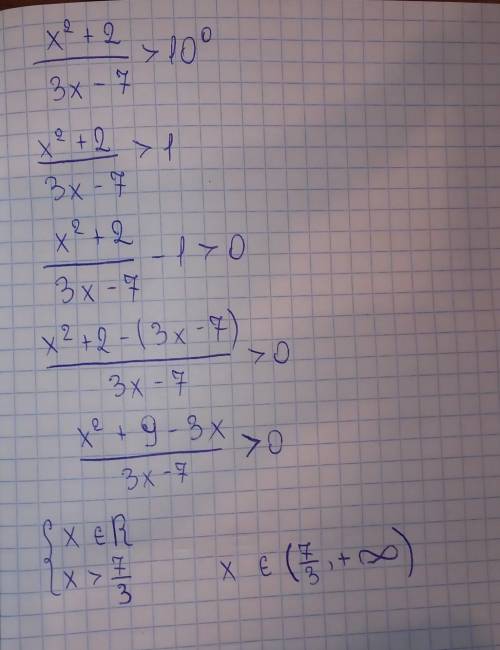 (x² + 2)/(3x - 7) > 10⁰
(x² + 2)/(3x - 7) > 1
(x² + 2)/(3x - 7) - 1 > 0
(x² + 2 - (3x - 7))/(3x - 7) > 0
(x² + 9 - 3x)/(3x - 7) > 0
{ x ∈ R
{ x > 7/3 x ∈ (7/3, +∞)